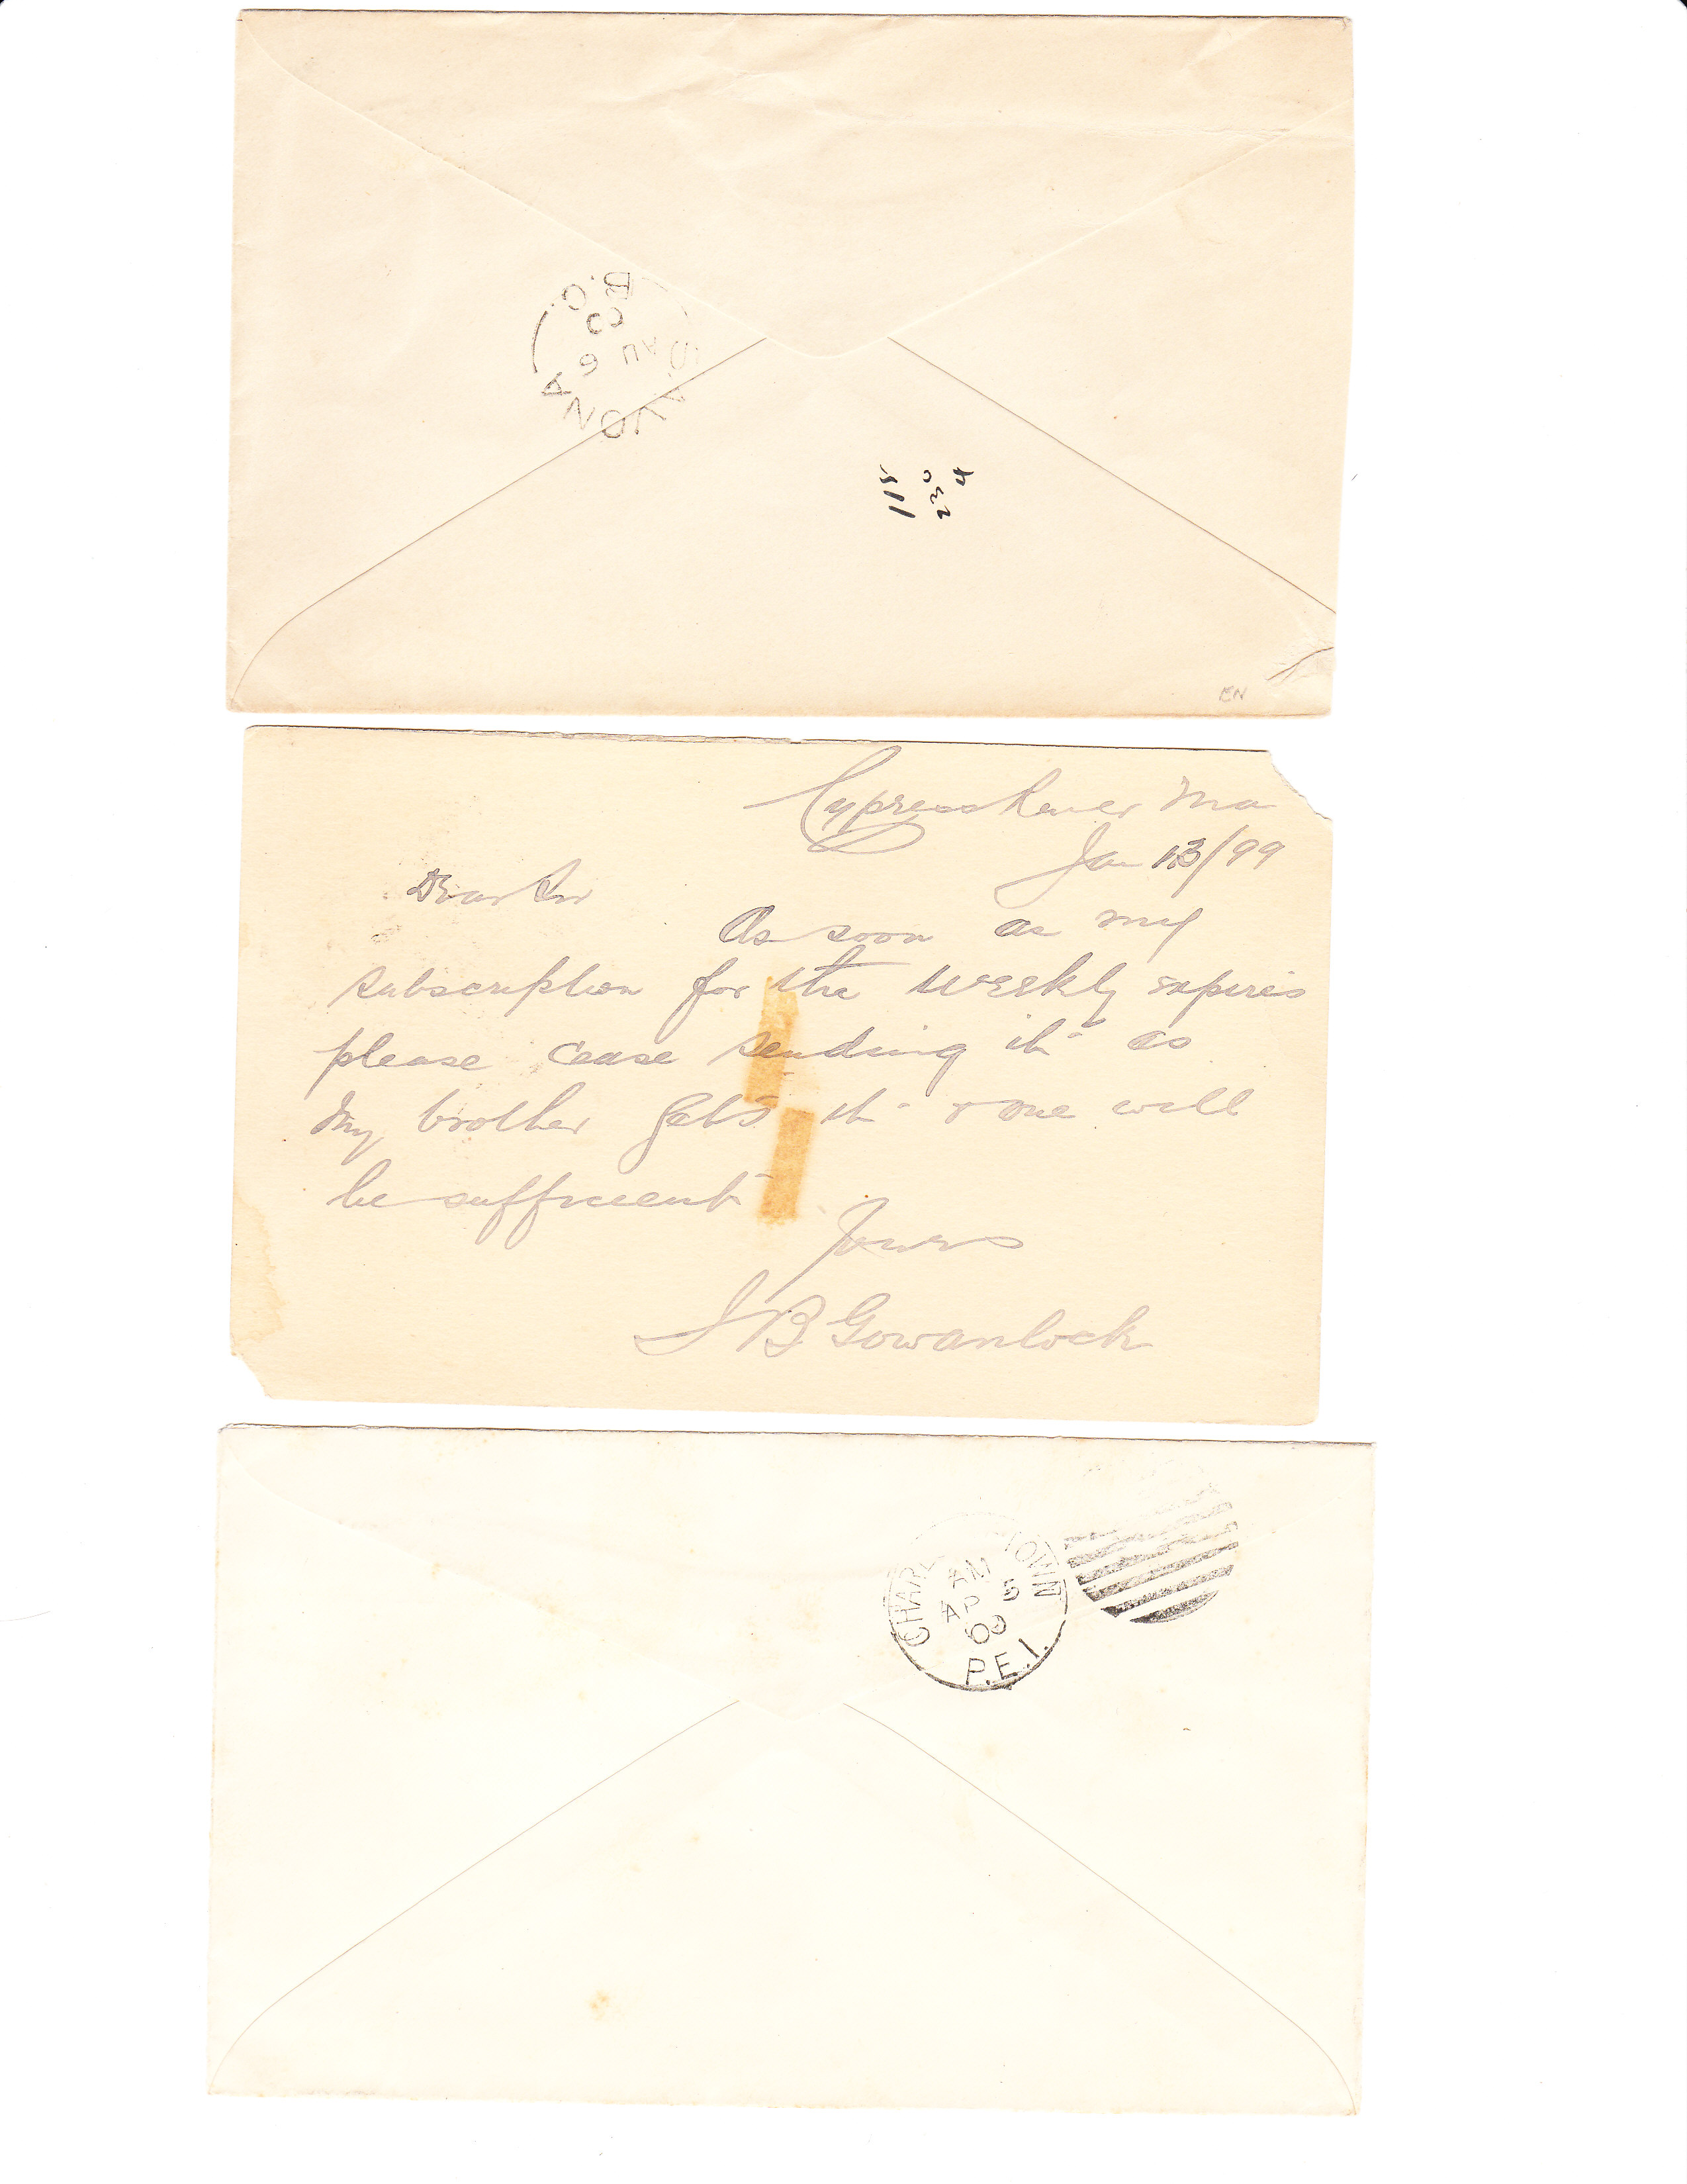 SAVONA
AU 6
B.C.
4
230
115
EN
Cypress River Ma
Jan 13/99
Dear Sir
As soon as my
subscription for the weekly expires
please cease sending it as
my brother gets it & one will
be sufficient
Yours
J B Gowanlock
CHARL TOWN
AM
AP 5
P.E.I.